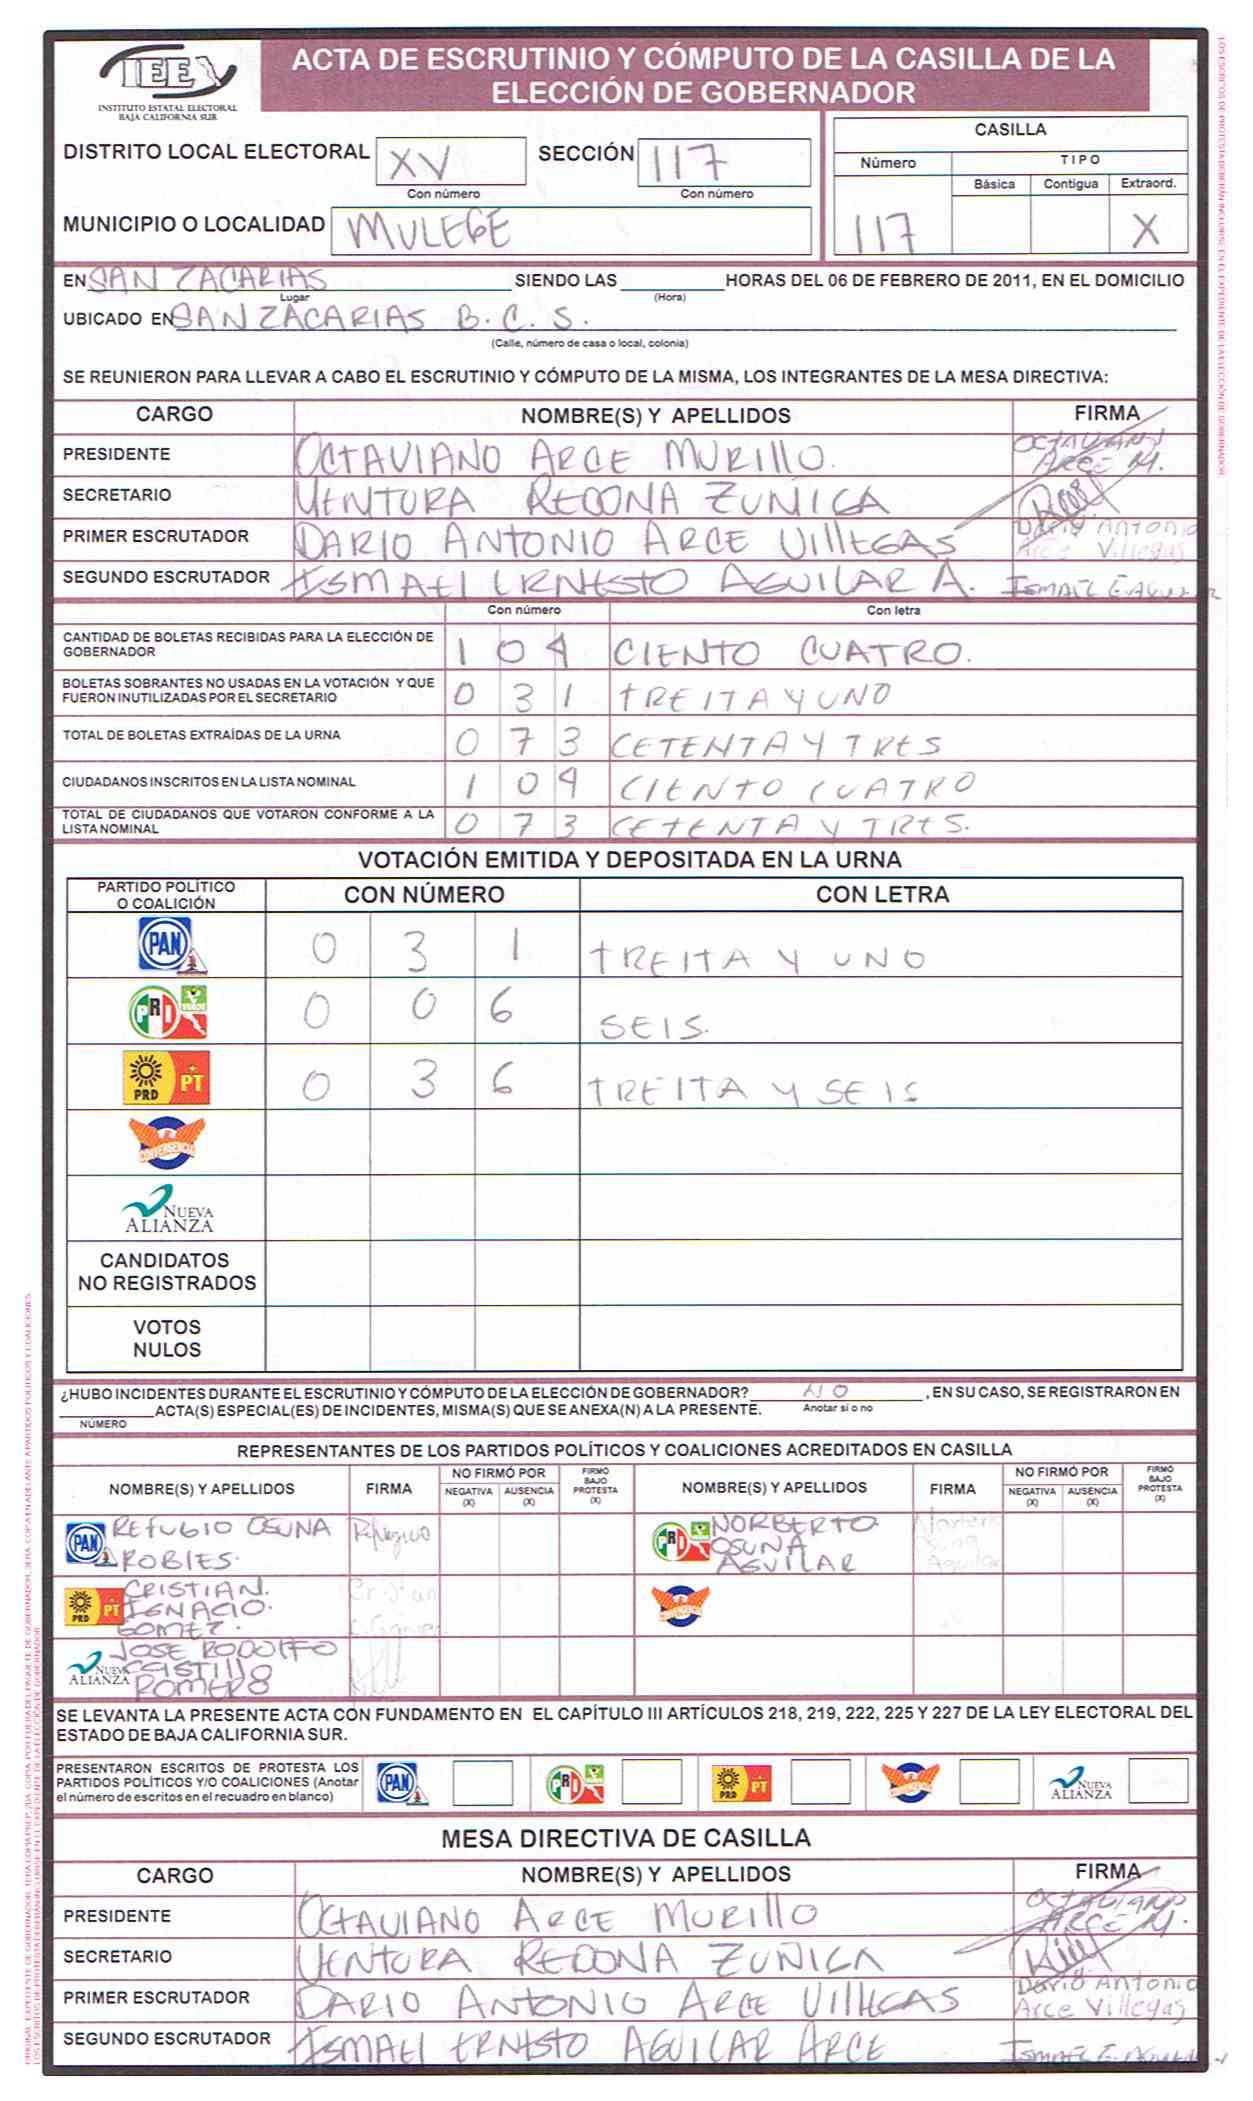 IEE
INSTITUTO ESTATAL ELECTORAL
BAJA CALIFORNIA SUR
ACTA DE ESCRUTINIO Y CÓMPUTO DE LA CASILLA DE LA
ELECCIÓN DE GOBERNADOR
DISTRITO LOCAL ELECTORAL XV SECCIÓN 117
Con número Con número
MUNICIPIO O LOCALIDAD MULEGE
CASILLA
Número TIPO
Básica Contigua Extraord.
117 X
EN SAN ZACARIAS SIENDO LAS HORAS DEL 06 DE FEBRERO DE 2011, EN EL DOMICILIO
Lugar (Hora)
UBICADO EN SAN ZACARIAS B.C.S.
(Calle, número de casa o local, colonia)
SE REUNIERON PARA LLEVAR A CABO EL ESCRUTINIO Y CÓMPUTO DE LA MISMA, LOS INTEGRANTES DE LA MESA DIRECTIVA:
CARGO NOMBRE(S) Y APELLIDOS FIRMA
PRESIDENTE OCTAVIANO ARCE MURILLO. OCTAVIANO ARCE M.
SECRETARIO VENTURA REDONA ZUÑIGA
PRIMER ESCRUTADOR DARIO ANTONIO ARCE VILLEGAS Dario Antonio Arce Villegas
SEGUNDO ESCRUTADOR ISMAEL ERNESTO AGUILAR A. ISMAEL E. AGUILAR
Con número Con letra
CANTIDAD DE BOLETAS RECIBIDAS PARA LA ELECCIÓN DE
GOBERNADOR 1 0 4 CIENTO CUATRO.
BOLETAS SOBRANTES NO USADAS EN LA VOTACIÓN Y QUE
FUERON INUTILIZADAS POR EL SECRETARIO 0 3 1 TREITA Y UNO
TOTAL DE BOLETAS EXTRAÍDAS DE LA URNA 0 7 3 CETENTA Y TRES
CIUDADANOS INSCRITOS EN LA LISTA NOMINAL 1 0 4 CIENTO CUATRO
TOTAL DE CIUDADANOS QUE VOTARON CONFORME A LA
LISTA NOMINAL 0 7 3 CETENTA Y TRES.
VOTACIÓN EMITIDA Y DEPOSITADA EN LA URNA
PARTIDO POLÍTICO
O COALICIÓN CON NÚMERO CON LETRA
PAN 0 3 1 TREITA Y UNO
PRI 0 0 6 SEIS.
PRD PT 0 3 6 TREITA Y SEIS
CONVERGENCIA
NUEVA
ALIANZA
CANDIDATOS
NO REGISTRADOS
VOTOS
NULOS
¿HUBO INCIDENTES DURANTE EL ESCRUTINIO Y CÓMPUTO DE LA ELECCIÓN DE GOBERNADOR? NO , EN SU CASO, SE REGISTRARON EN
ACTA(S) ESPECIAL(ES) DE INCIDENTES, MISMA(S) QUE SE ANEXA(N) A LA PRESENTE. Anotar si o no
NÚMERO
REPRESENTANTES DE LOS PARTIDOS POLÍTICOS Y COALICIONES ACREDITADOS EN CASILLA
NOMBRE(S) Y APELLIDOS FIRMA NO FIRMÓ POR NEGATIVA (X) AUSENCIA (X) FIRMÓ BAJO PROTESTA (X) NOMBRE(S) Y APELLIDOS FIRMA NO FIRMÓ POR NEGATIVA (X) AUSENCIA (X) FIRMÓ BAJO PROTESTA (X)
PAN REFUGIO OSUNA
ROBLES. Refugio
PRI NORBERTO
OSUNA
AGUILAR Norberto
Osuna
Aguilar
PRD PT CRISTIAN.
IGNACIO.
GOMEZ. Cristian
CONVERGENCIA
NUEVA ALIANZA JOSE RODOLFO
CASTILLO
ROMERO
SE LEVANTA LA PRESENTE ACTA CON FUNDAMENTO EN EL CAPÍTULO III ARTÍCULOS 218, 219, 222, 225 Y 227 DE LA LEY ELECTORAL DEL
ESTADO DE BAJA CALIFORNIA SUR.
PRESENTARON ESCRITOS DE PROTESTA LOS
PARTIDOS POLÍTICOS Y/O COALICIONES (Anotar
el número de escritos en el recuadro en blanco)
PAN PRI PRD PT CONVERGENCIA NUEVA ALIANZA
MESA DIRECTIVA DE CASILLA
CARGO NOMBRE(S) Y APELLIDOS FIRMA
PRESIDENTE OCTAVIANO ARCE MURILLO OCTAVIANO ARCE M.
SECRETARIO VENTURA REDONA ZUÑIGA
PRIMER ESCRUTADOR DARIO ANTONIO ARCE VILLEGAS Dario Antonio Arce Villegas
SEGUNDO ESCRUTADOR ISMAEL ERNESTO AGUILAR ARCE ISMAEL E. AGUILAR
LOS ESCRITOS DE PROTESTA DEBERÁN INCLUIRSE EN EL EXPEDIENTE DE LA ELECCIÓN DE GOBERNADOR